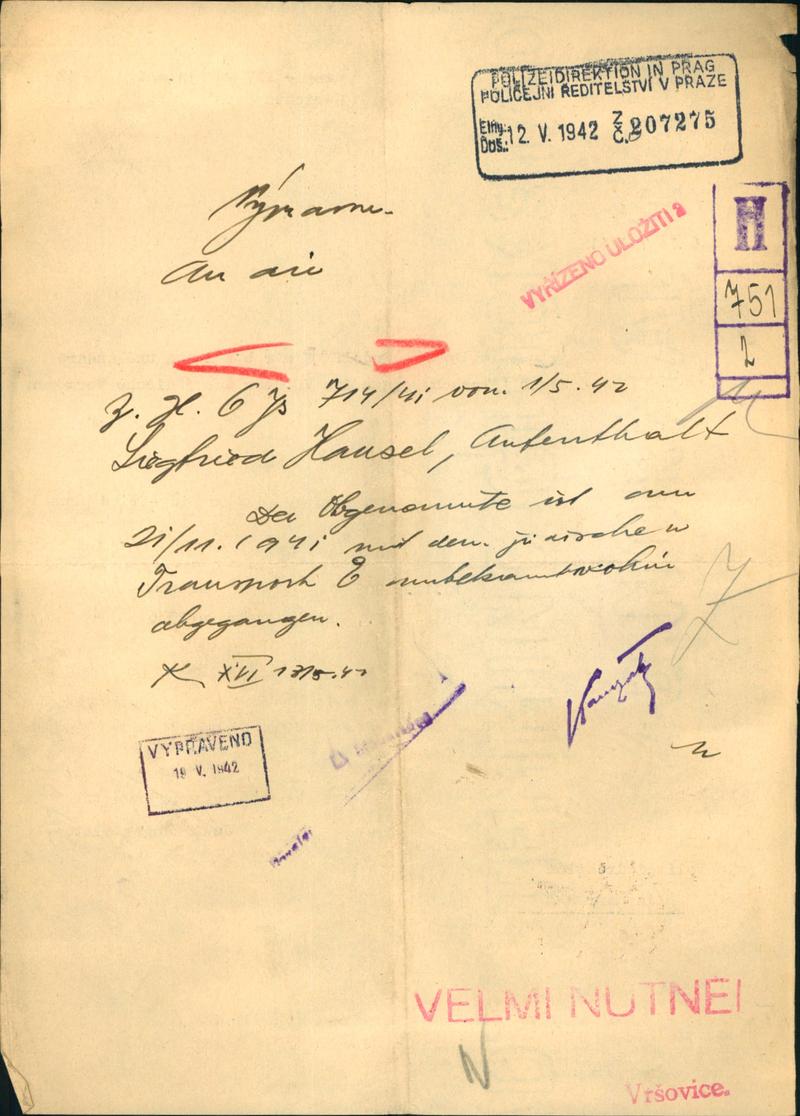 POLIZEIDIREKTION IN PRAG
POLICEJNÍ ŘEDITELSTVÍ V PRAZE
Eing.: Došl.: 12. V. 1942 Z. Č. 207275
II
751
2
VYŘÍZENO ULOŽITI a
An die
z. H. 6 Js 714/41 vom 1/5.42
Siegfried Hansel, Aufenthalt
Der Obgenannte ist am
21/11.1941 mit dem jüdischen
Transport E unbekannt wohin
abgegangen.
K XVI 13/5.42
VYPRAVENO
19 V. 1942
VELMI NUTNÉ!
Vršovice.